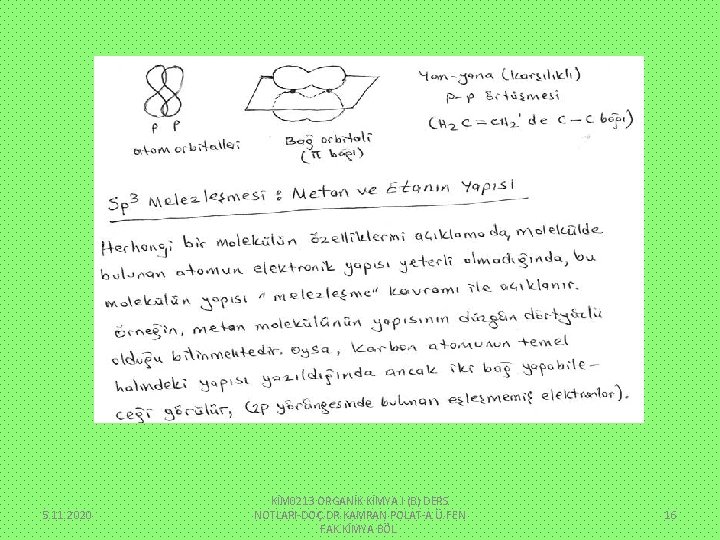 Yan-yana (karşılıklı)
p-p örtüşmesi
(H2C=CH2' de C-C bağı)
P P
atom orbitalleri
Bağ orbitali
(π bağı)
Sp3 Melezleşmesi : Metan ve Etanın Yapısı
Herhangi bir molekülün özelliklerini açıklamada, molekülde
bulunan atomun elektronik yapısı yeterli olmadığında, bu
molekülün yapısı "melezleşme" kavramı ile açıklanır.
Örneğin, metan molekülünün yapısının düzgün dörtyüzlü
olduğu bilinmektedir. Oysa, karbon atomunun temel
halindeki yapısı yazıldığında ancak iki bağ yapabile-
ceği görülür, (2p yörüngesinde bulunan eşleşmemiş elektronlar).
5.11.2020
KİM0213 ORGANİK KİMYA I (B) DERS
NOTLARI-DOÇ.DR.KAMRAN POLAT-A.Ü.FEN
FAK.KİMYA BÖL
16